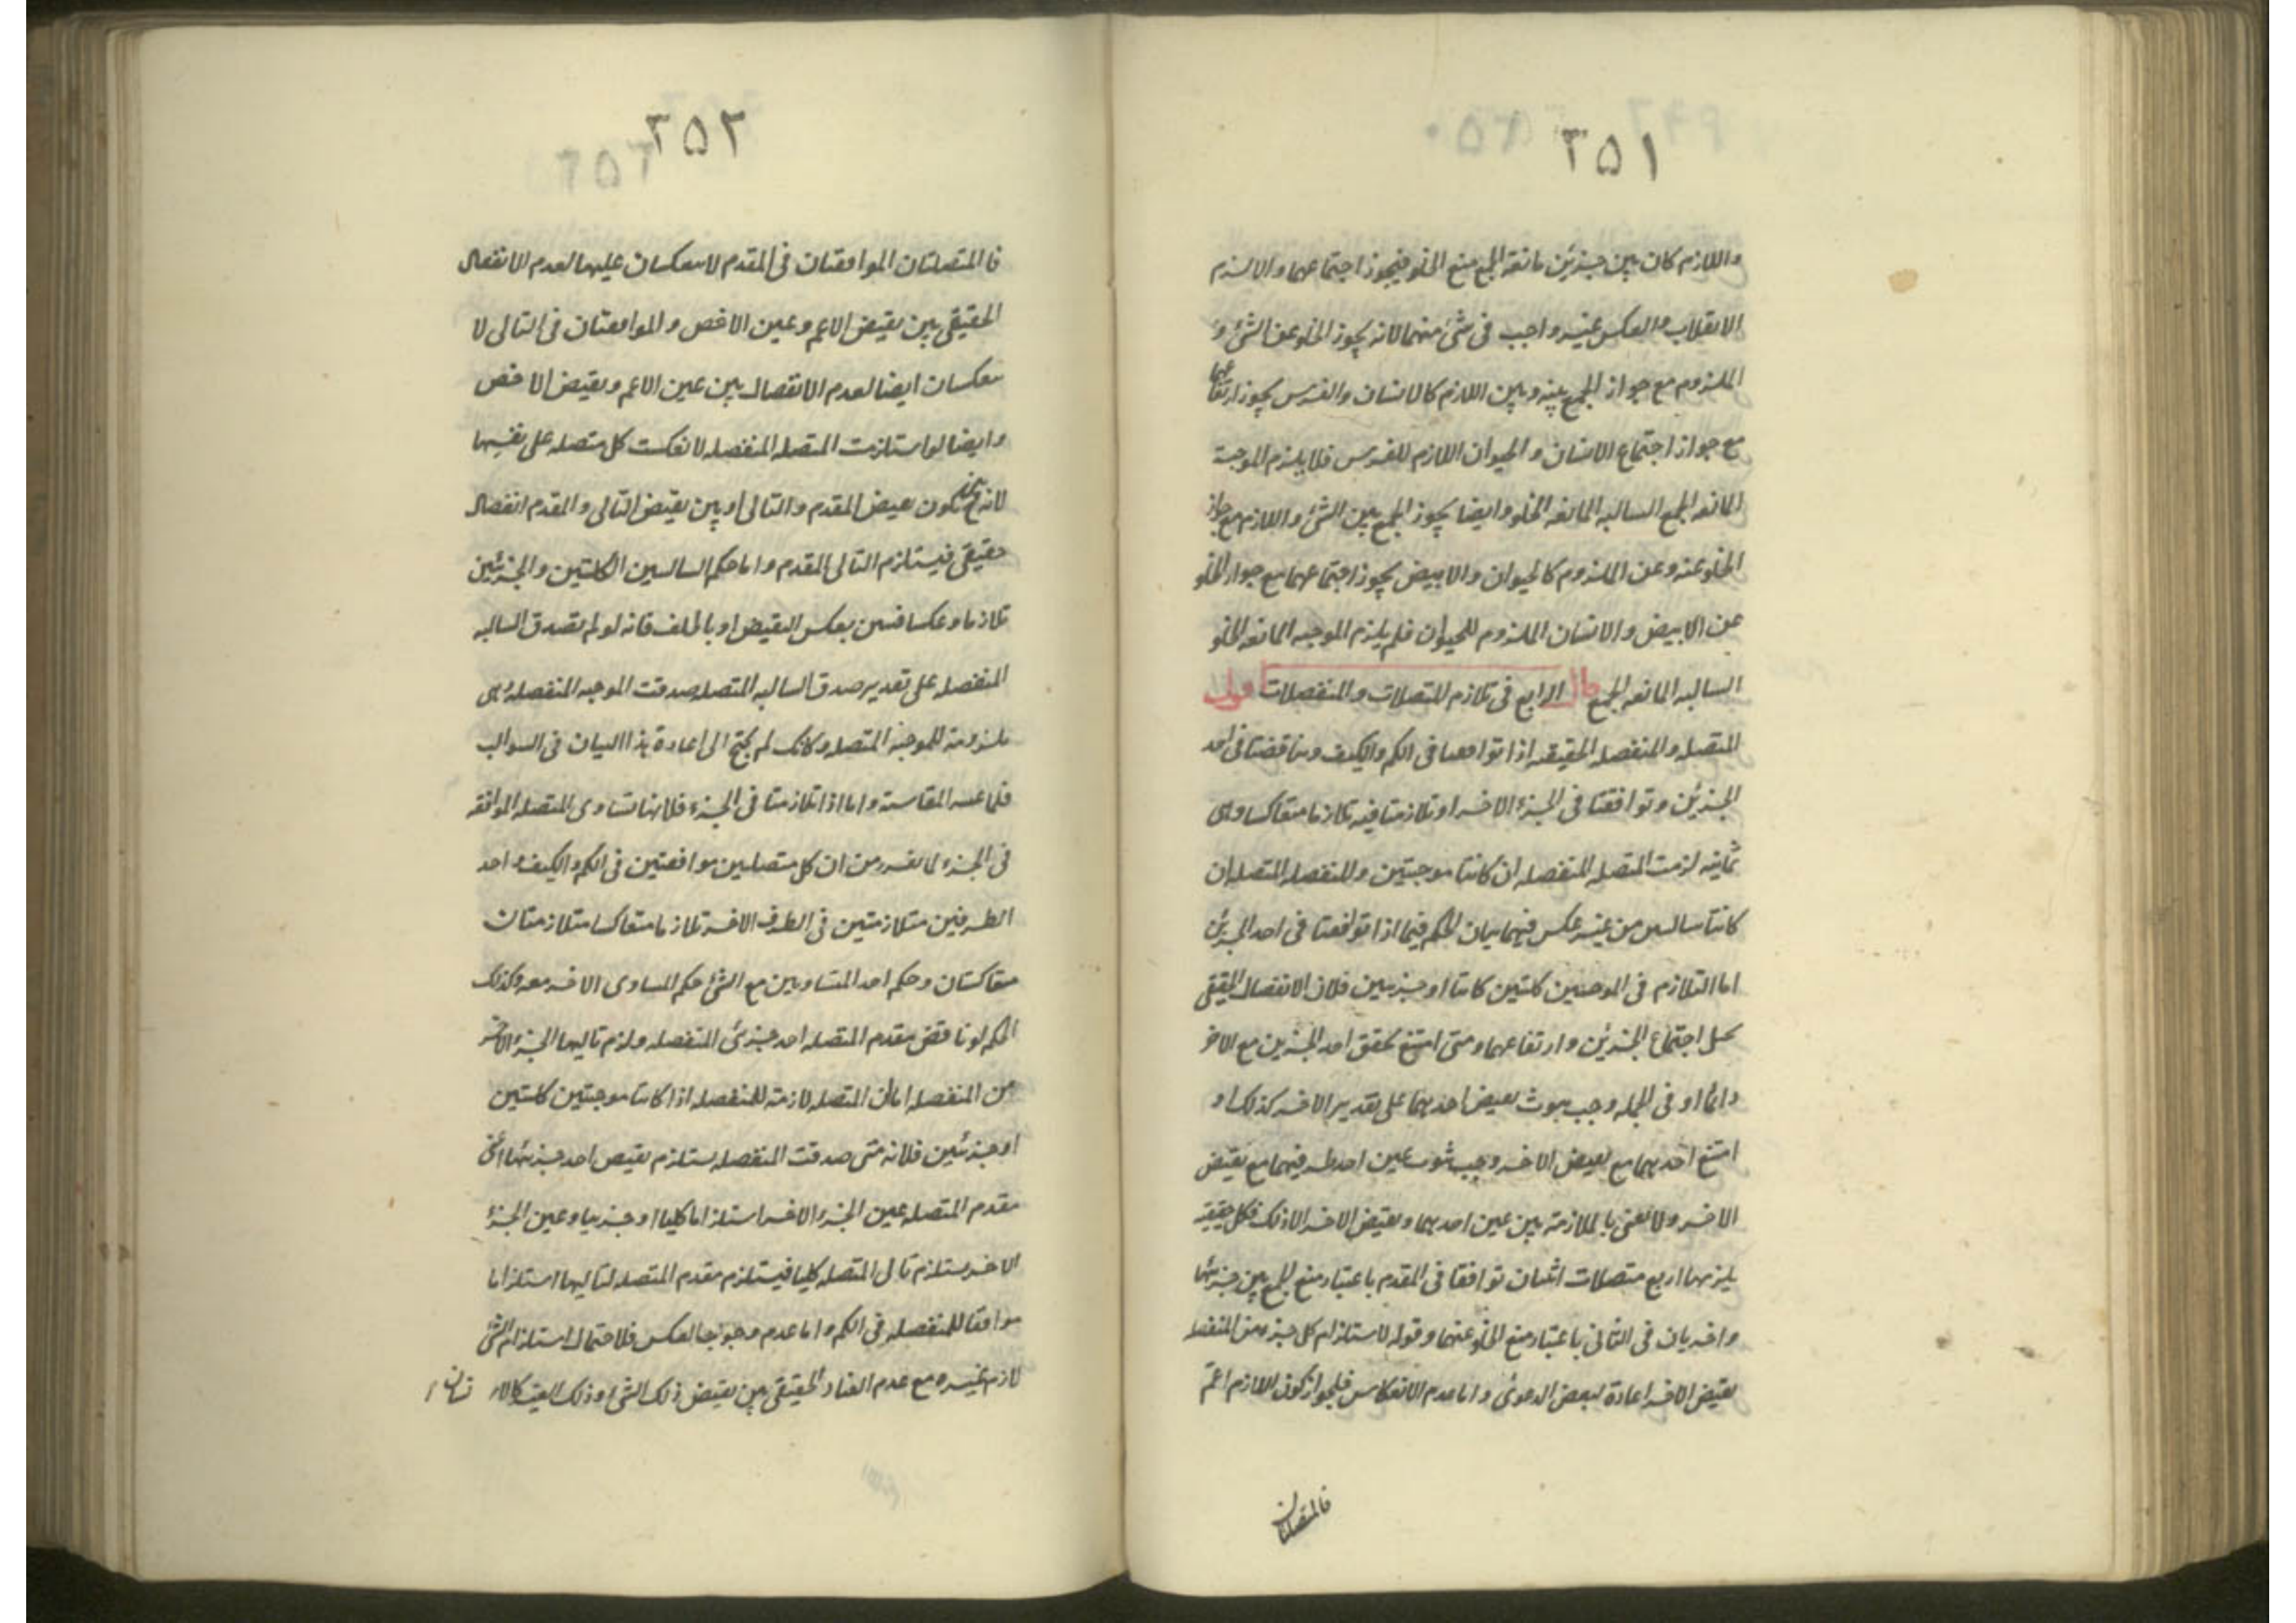 ٣٥١
واللازم كان بين جزئين مانعة الجمع منع الخلو فيجوز اجتماعهما والا لزم
الانقلاب والعكس غير واجب في شئ منهما لانه يجوز الخلو عن الشئ و
الملزوم مع جواز الجمع بينه وبين اللازم كالانسان والفرس يجوز ارتفاعهما
مع جواز اجتماع الانسان والحيوان اللازم للفرس فلا يلزم الموجبة
المانعه الجمع السالبه المانعه الخلو وايضا يجوز الجمع بين الشئ واللازم مع جواز
الخلو عنه وعن الملزوم كالحيوان والابيض يجوز اجتماعهما مع جواز الخلو
عن الابيض والانسان الملزوم للحيوان فلم يلزم الموجبه المانعه الخلو
السالبه المانعه الجمع قال الرابع في تلازم المتصلات والمنفصلات اقول
المتصله والمنفصله الحقيقيه اذا توافقتا في الكم والكيف وتناقضتا في احد
الجزئين وتوافقتا في الجزء الاخر او تلازمتا فيه تلازما متعاكسا وهى
ثمانية لزمت المتصله المنفصله ان كانتا موجبتين والمنفصله المتصله ان
كانتا سالبتين من غير عكس فيهما بيان الحكم فيما اذا توافقتا في احد الجزئين
اما التلازم في الموجبتين كليتين كانتا او جزئيتين فلان الانفصال الحقيقى
يحيل اجتماع الجزئين وارتفاعهما ومتى امتنع تحقق احد الجزئين مع الاخر
دائما او في الجمله وجب ثبوت نقيض احدهما على تقدير الاخر كذلك او
امتنع احدهما مع نقيض الاخر وجب ثبوت عين احد طرفيهما مع نقيض
الاخر ولا نعنى بالملازمة بين عين احدهما ونقيض الاخر الا ذلك فكل حقيقيه
يلزمها اربع متصلات اثنتان توافقتا في المقدم باعتبار منع الجمع بين جزئيها
واخريان في التالى باعتبار منع الخلو عنهما وقوله لاستلزام كل جزء من المنفصله
نقيض الاخر اعادة لبعض الدعوى واما عدم الانعكاس فلجواز كون اللازم اعم
فالمتصلتان
٣٥٢
فالمتصلتان الموافقتان في المقدم لا ينعكسان عليها لعدم الانفصال
الحقيقى بين نقيض الاعم وعين الاخص والموافقتان في التالى لا
ينعكسان ايضا لعدم الانفصال بين عين الاعم ونقيض الاخص
وايضا لو استلزمت المتصله المنفصله لانعكست كل متصله على نفسها
لانه ح يكون بين نقيض المقدم والتالى او بين نقيض التالى والمقدم انفصال
حقيقى فيستلزم التالى المقدم واما حكم السالبتين الكليتين والجزئيتين
تلازما وعكسا فتبين بعكس النقيض او بالخلف فانه لو لم تصدق السالبه
المنفصله على تقدير صدق السالبه المتصله صدقت الموجبه المنفصله وهى
ملزومة للموجبه المتصله وكانك لم تحتج الى اعادة هذا البيان في السوالب
واما اذا تلازمتا في الجزء فلانها تساوى المتصله الموافقه
في الجزء لما تقرر من ان كل متصلين موافقتين في الكم والكيف واحد
الطرفين متلازمتين في الطرف الاخر تلازما متعاكسا متلازمتان
متعاكستان وحكم احد المتساويين مع الشئ حكم المساوى الاخر معه وكذلك
الحكم لو ناقض مقدم المتصله احد جزئى المنفصله ولازم تاليها الجزء الاخر
من المنفصله اما ان المتصله لازمة للمنفصله اذا كانتا موجبتين كليتين
او جزئيتين فلانه متى صدقت المنفصله يستلزم نقيض احد جزئيها اعنى
مقدم المتصله عين الجزء الاخر استلزاما كليا او جزئيا وعين الجزء
الاخر يستلزم تالى المتصله كليا فيستلزم مقدم المتصله لتاليها استلزاما
موافقا للمنفصله في الكم واما عدم وجوب العكس فلاحتمال استلزام الشئ
لازم غيره مع عدم العناد الحقيقى بين نقيض ذلك الشئ وذلك الغير كالا نسان